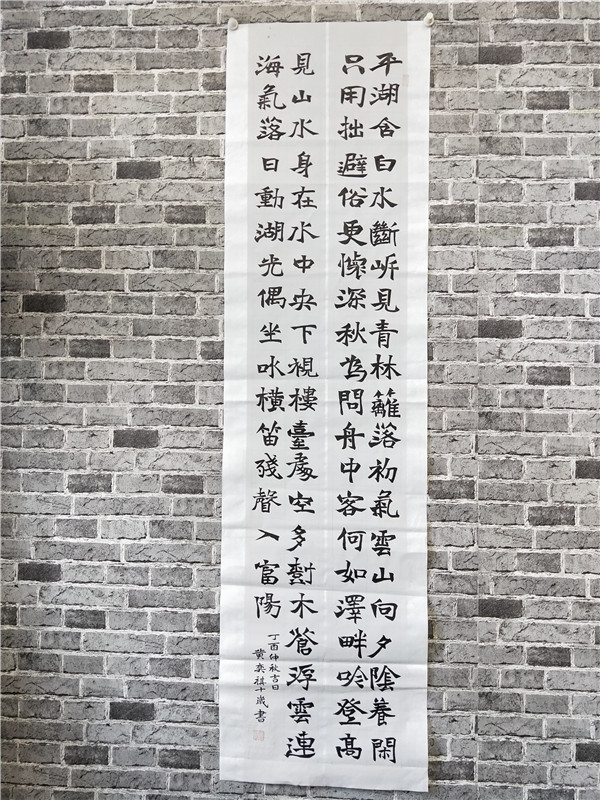 平湖含白水斷岸見青林籬落初氣雲山向夕陰養閑
只用拙避俗更懷深秋為問舟中客何如澤畔吟登高
見山水身在水中央下視樓臺處空多樹木蒼浮雲連
海氣落日動湖光偶坐吹橫笛殘聲入富陽
丁酉仲秋吉日
黄奕祺十歲書